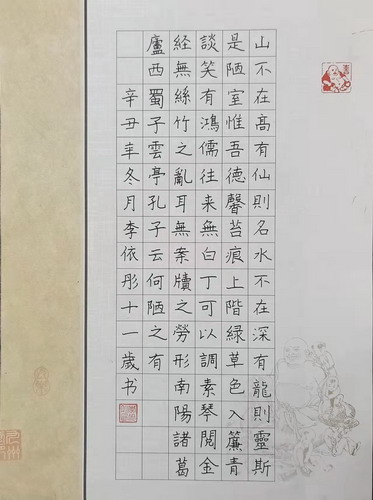 山不在高有仙則名水不在深有龍則靈斯
是陋室惟吾德馨苔痕上階綠草色入簾青
談笑有鴻儒往来無白丁可以調素琴閱金
経無絲竹之亂耳無案牘之勞形南陽諸葛
廬西蜀子雲亭孔子云何陋之有
辛丑年冬月李依彤十一歲书